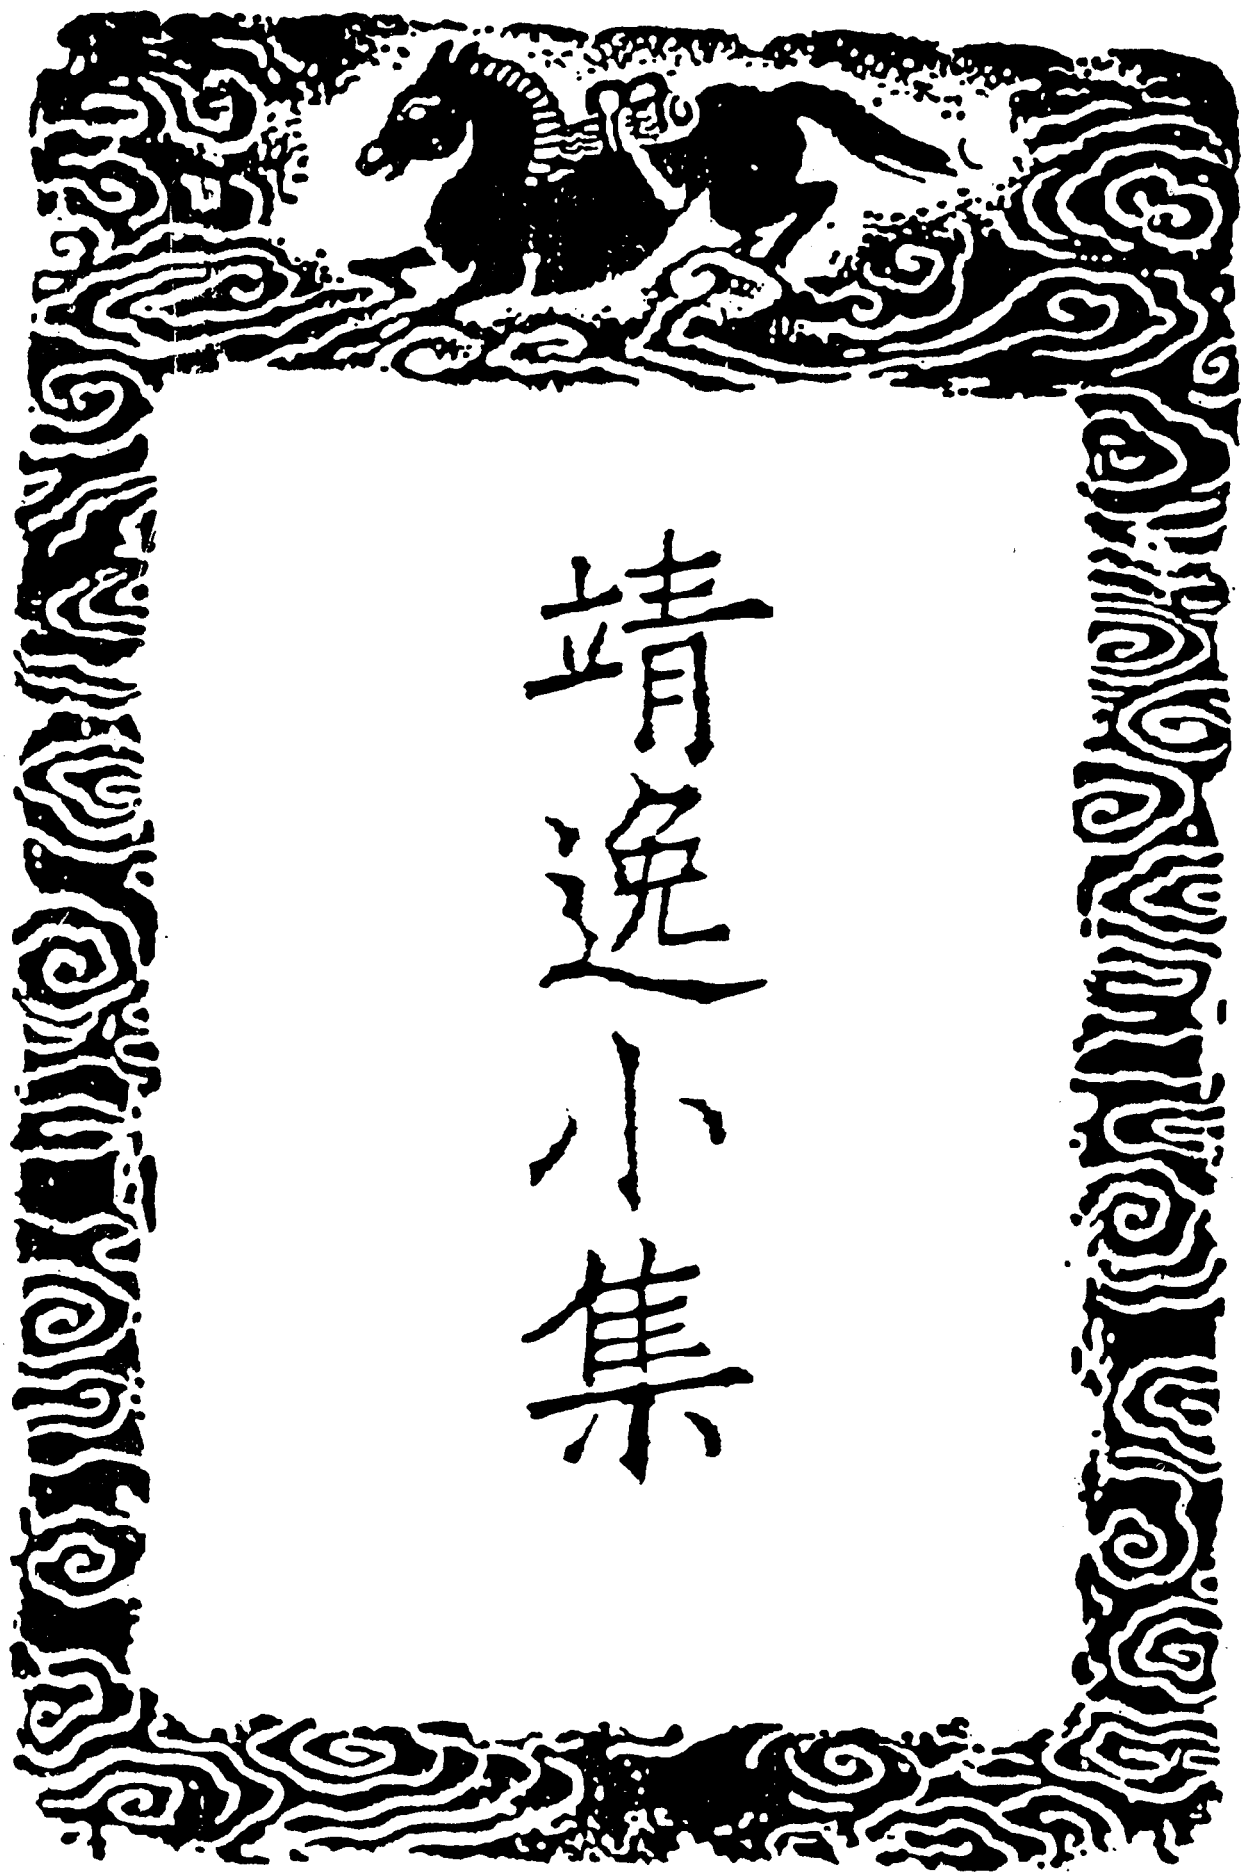 靖逸小集